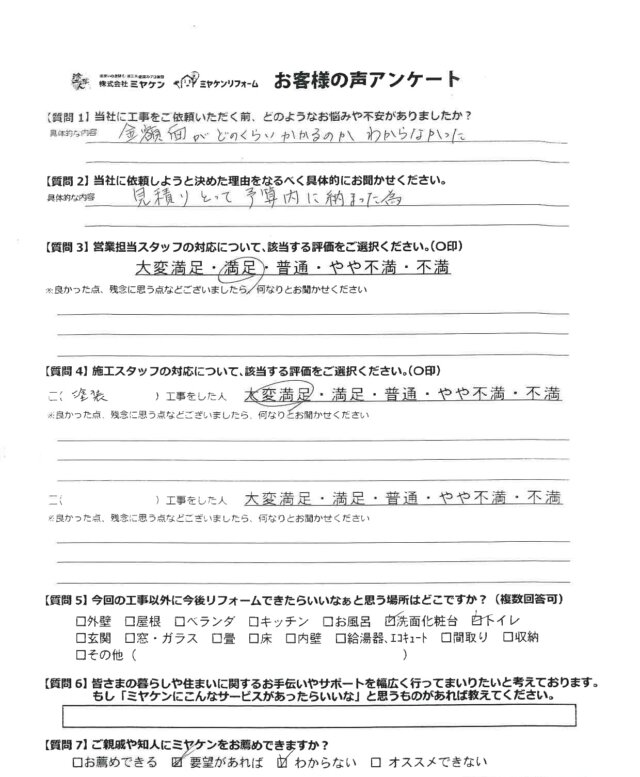 株式会社 ミヤケン ミヤケンリフォーム お客様の声アンケート
【質問 1】当社に工事をご依頼いただく前、どのようなお悩みや不安がありましたか？
具体的な内容 金額面がどのくらいかかるのか わからなかった
【質問 2】当社に依頼しようと決めた理由をなるべく具体的にお聞かせください。
具体的な内容 見積りとって予算内に納まった為
【質問 3】営業担当スタッフの対応について、該当する評価をご選択ください。（〇印）
大変満足・満足・普通・やや不満・不満
※良かった点、残念に思う点などございましたら、何なりとお聞かせください
【質問 4】施工スタッフの対応について、該当する評価をご選択ください。（〇印）
（塗装 ）工事をした人 大変満足・満足・普通・やや不満・不満
※良かった点、残念に思う点などございましたら、何なりとお聞かせください
（ ）工事をした人 大変満足・満足・普通・やや不満・不満
※良かった点、残念に思う点などございましたら、何なりとお聞かせください
【質問 5】今回の工事以外に今後リフォームできたらいいなぁと思う場所はどこですか？（複数回答可）
□外壁 □屋根 □ベランダ □キッチン □お風呂 ☑洗面化粧台 ☑トイレ
□玄関 □窓・ガラス □畳 □床 □内壁 □給湯器、エコキュート □間取り □収納
□その他（ ）
【質問 6】皆さまの暮らしや住まいに関するお手伝いやサポートを幅広く行ってまいりたいと考えております。
もし「ミヤケンにこんなサービスがあったらいいな」と思うものがあれば教えてください。
【質問 7】ご親戚や知人にミヤケンをお薦めできますか？
□お薦めできる ☑ 要望があれば ☑ わからない □ オススメできない